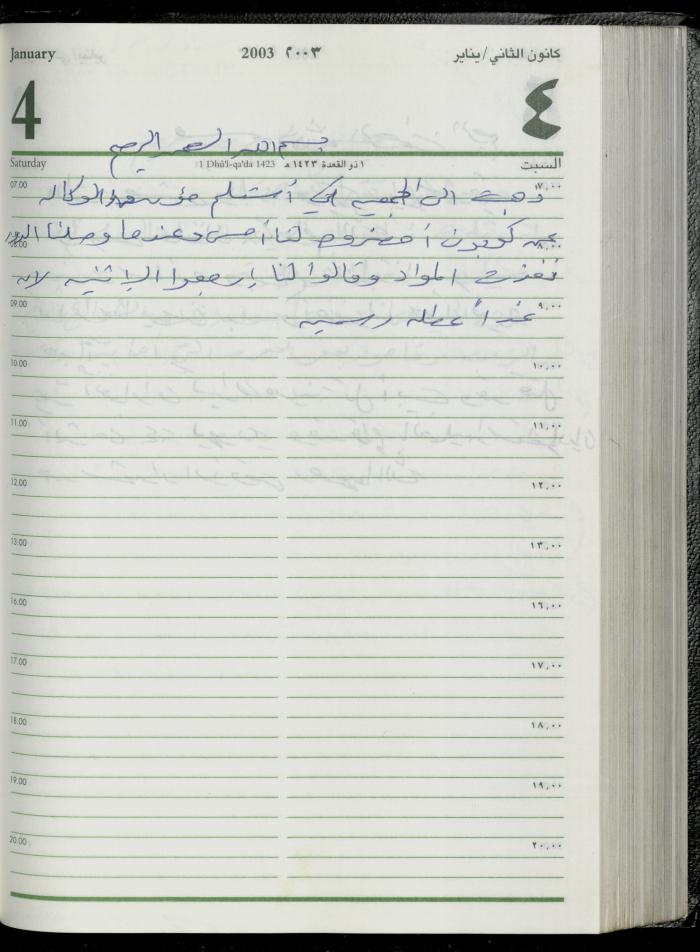 January 2003 ٢٠٠٣ كانون الثاني/يناير
4 ٤
بسم الله الرحمن الرحيم
Saturday 1 Dhû'l-qa'da 1423 ١ ذو القعدة ١٤٢٣ هـ السبت
07.00 ٧,٠٠
ذهبت الى الجمعيه لكي أستلم مؤن الوكاله
08.00 ٨,٠٠
عن كوبون لنا أمس وعندما وصلنا اليوم
نفذت المواد وقالوا لنا إرجعوا الإثنين لان
09.00 ٩,٠٠
غداً عطله رسميه
10.00 ١٠,٠٠
11.00 ١١,٠٠
12.00 ١٢,٠٠
13.00 ١٣,٠٠
16.00 ١٦,٠٠
17.00 ١٧,٠٠
18.00 ١٨,٠٠
19.00 ١٩,٠٠
20.00 ٢٠,٠٠